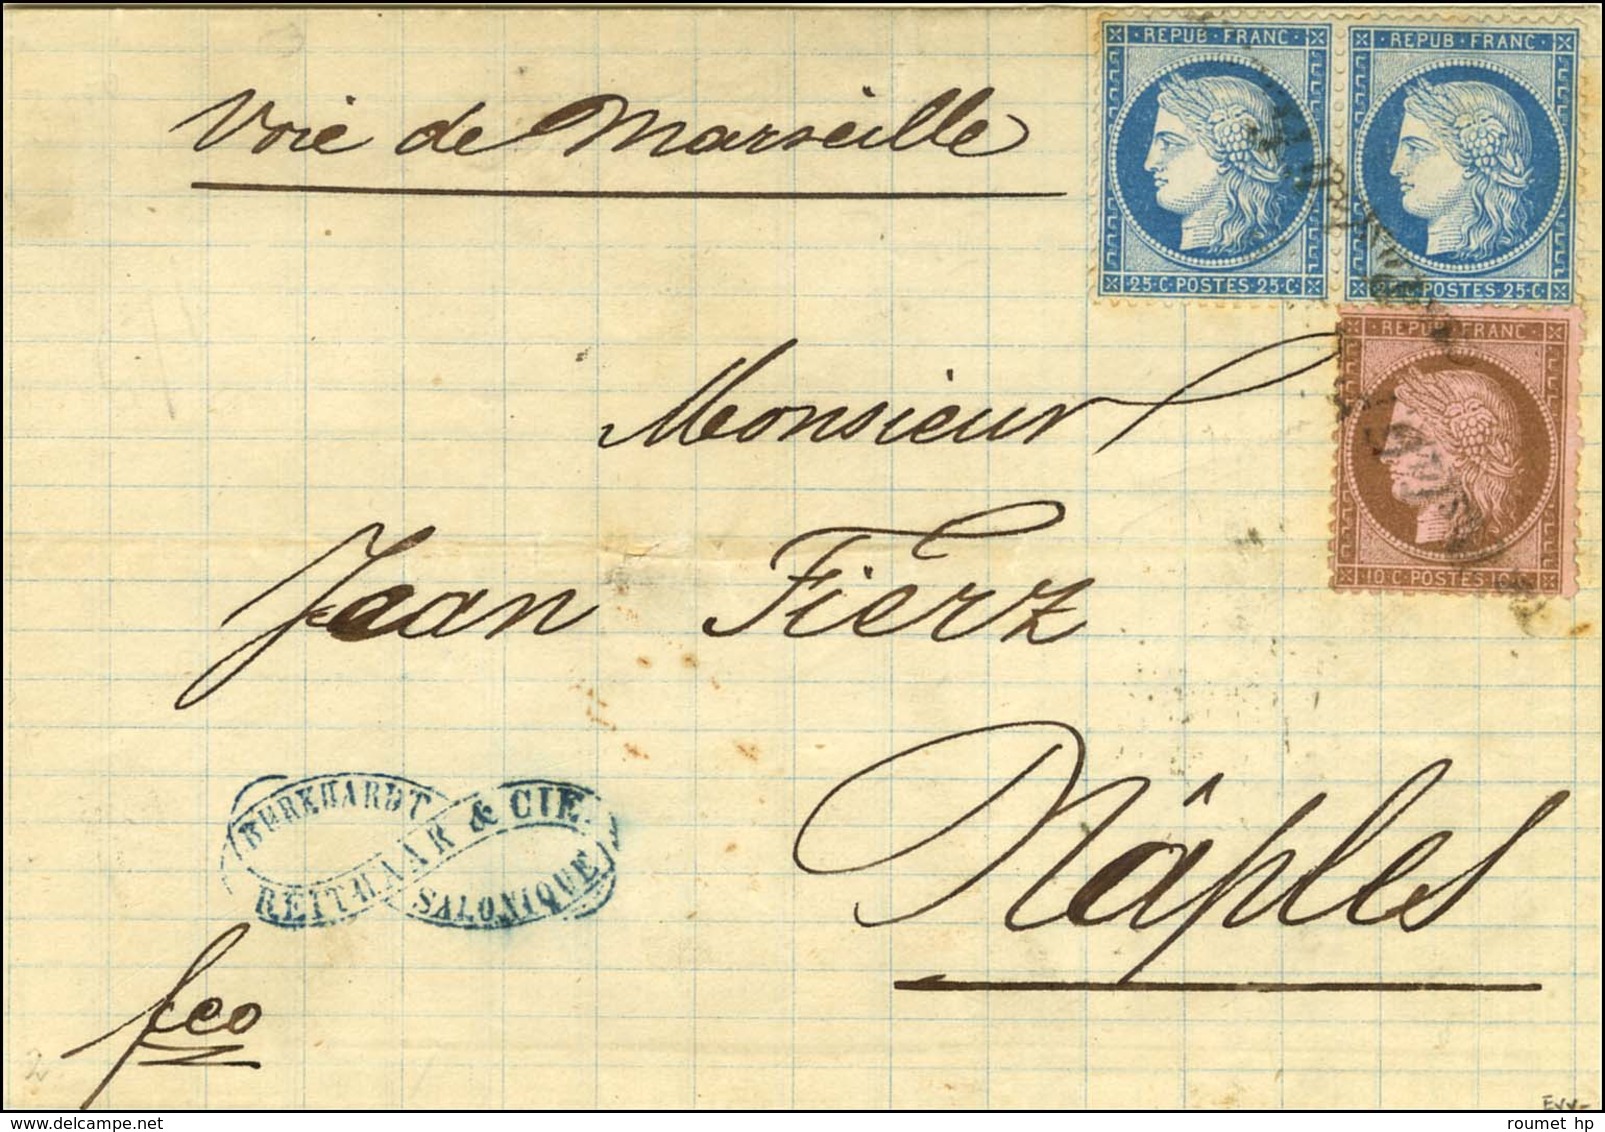 Voie de Marseille
REPUB·FRANC·
25·C·POSTES·25·C·
REPUB·FRANC·
POSTES·25·C·
REPUB·FRANC·
10·C·POSTES·10
Monsieur
Jean Fierz
Nâples
BURKHARDT
REITHAAR & CIE.
SALONIQUE
fco
roumet hp